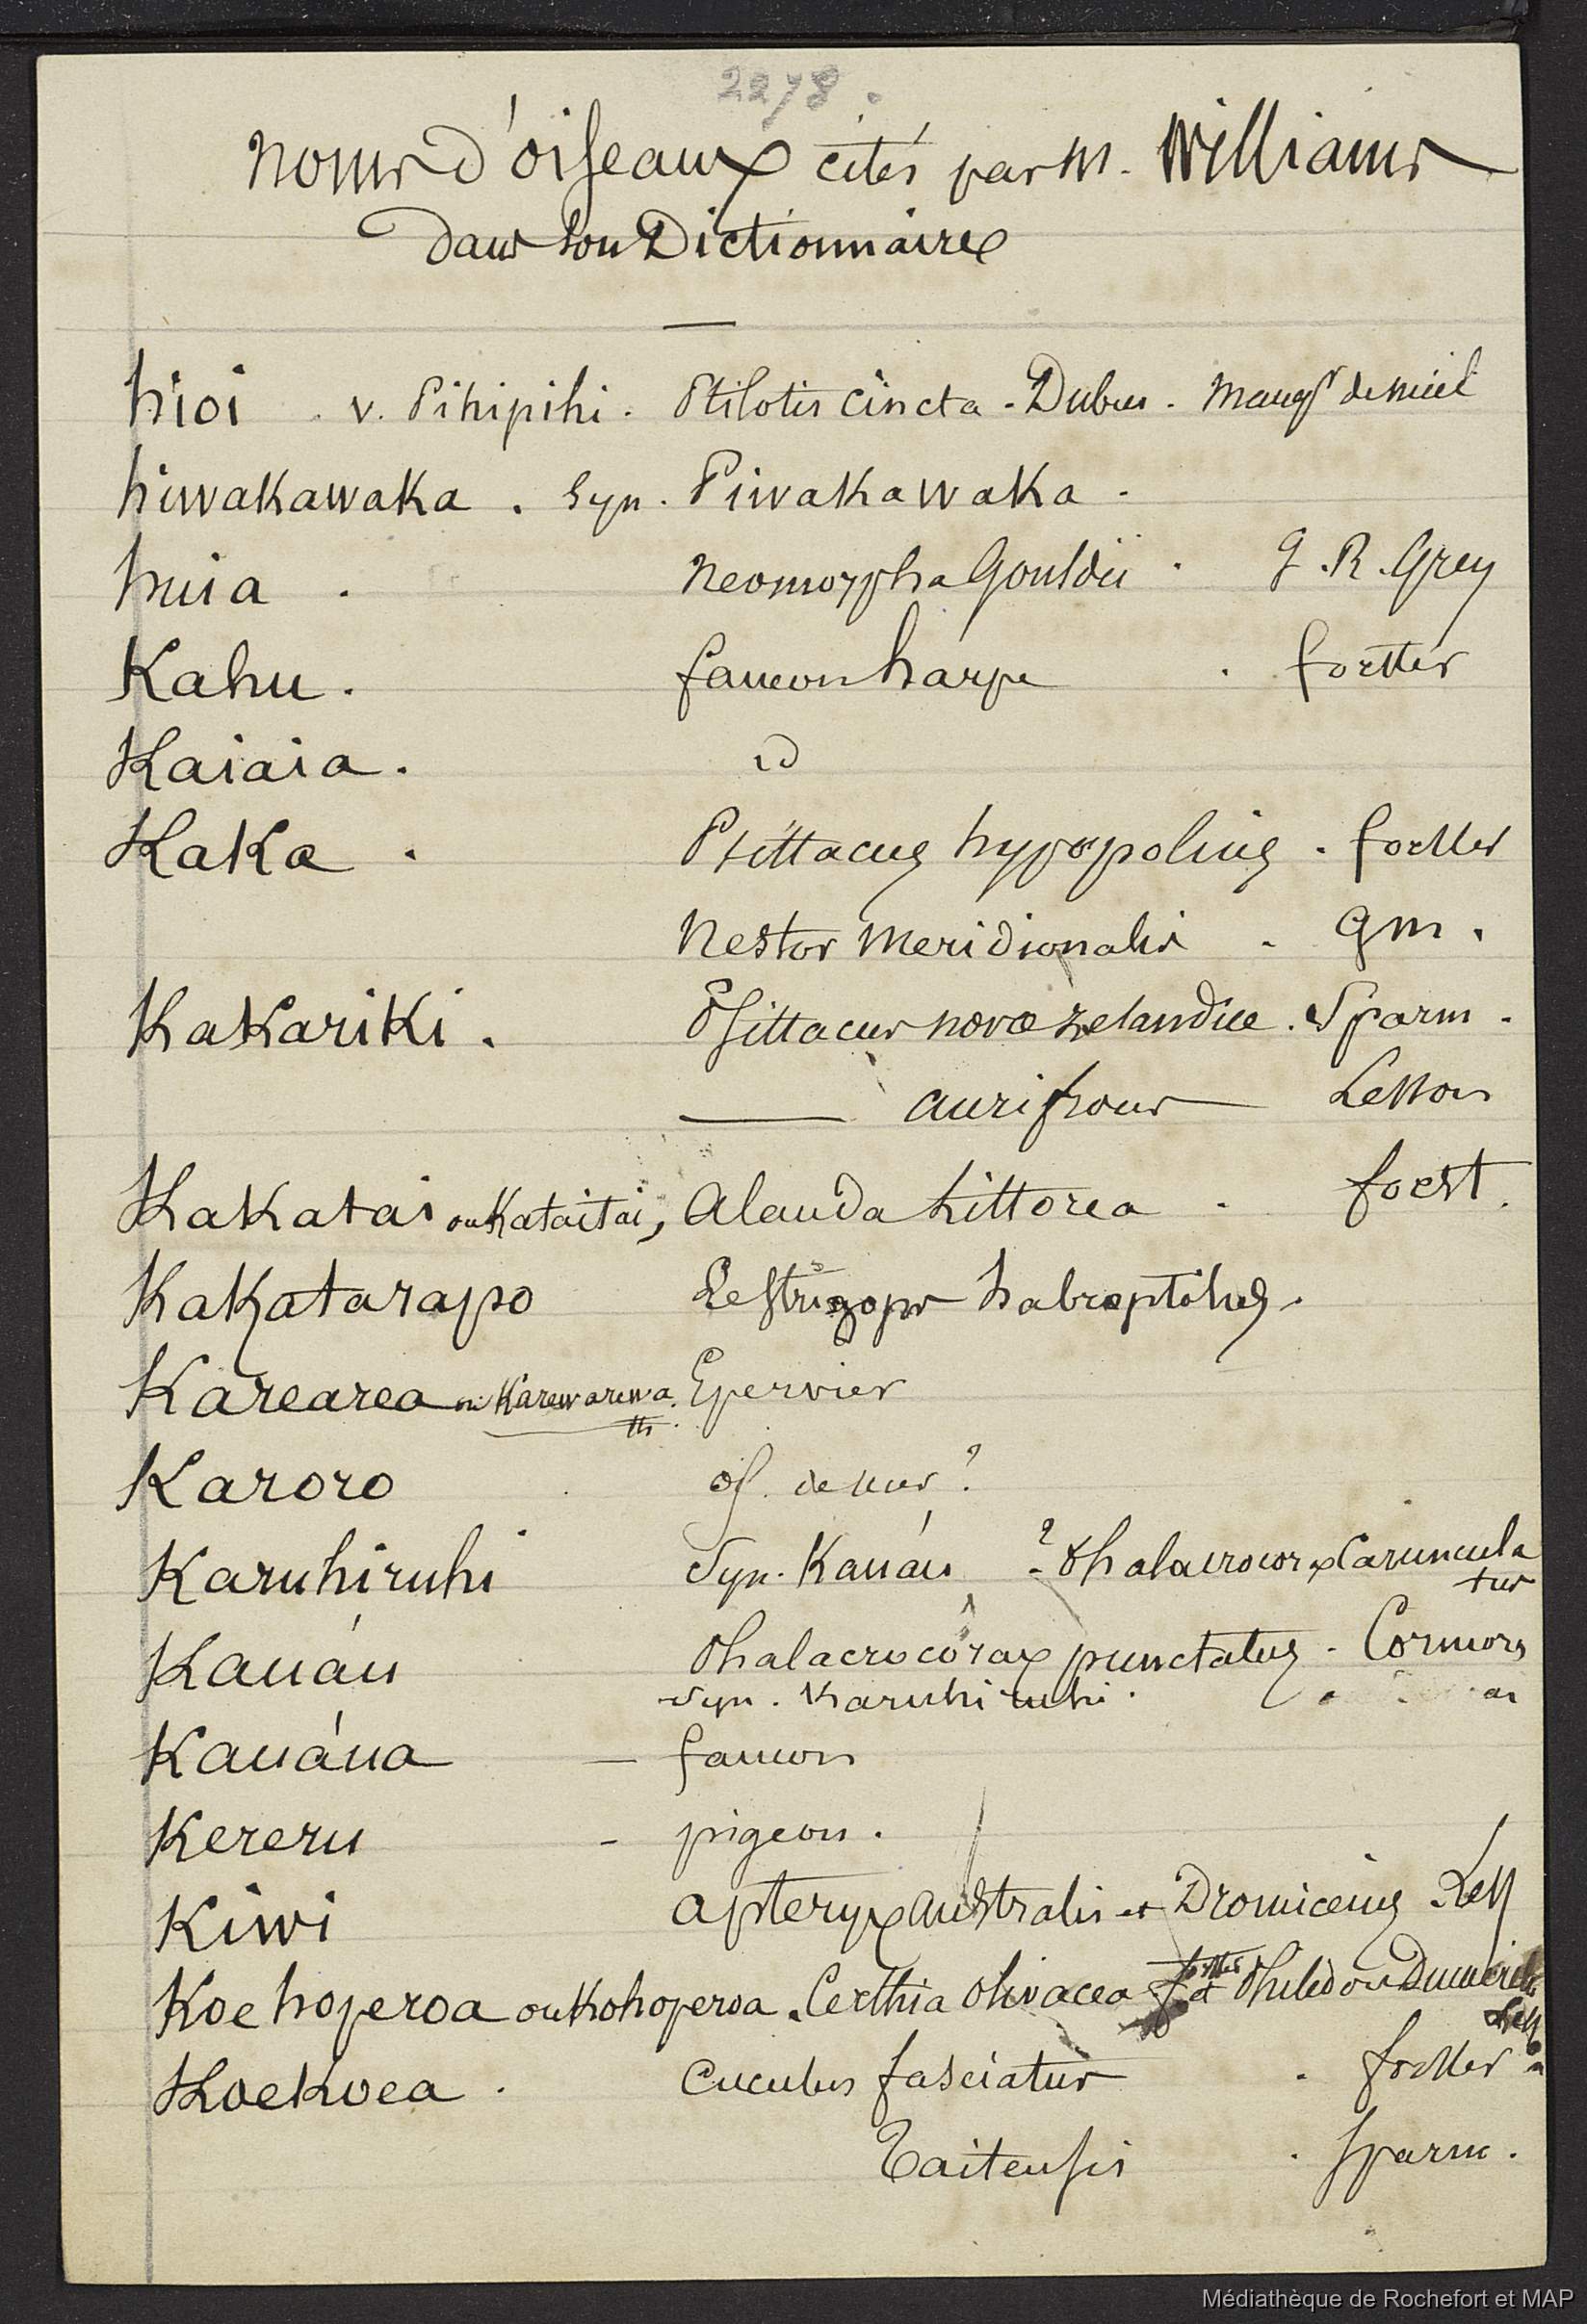 2278.
Noms d'oiseaux cités par M. Williams
dans son Dictionnaire
hioi . v. Pihipihi . Ptilotis cincta . Dubus . Mangr de miel
hiwakawaka . Syn . Piwakawaka .
huia . Neomorpha Gouldii . G. R. Grey
Kahu . faucon harpe . forster
Kaiaia . id
Kaka . Psittacus hypopolius . forster
Nestor meridionalis . Gm .
Kakariki . Psittacus novæ zelandiæ . Sparm .
—— aurifrons — Lesson
Kakatai ou Kataitai, Alauda littorea . forst.
Kakatarapo Lestrigops habroptilus .
Karearea ou Karewarewa . Epervier
Karoro os. de mer ?
Karuhiruhi Syn. Kauáu ? Phalacrocorax Caruncula
tus
Kauáu Phalacrocorax punctatus . Cormoran
Syn . Karuhiruhi .
Kauáua — faucon
Kereru - pigeon .
Kiwi apteryx australis et Dromiceius Less
Koehoperoa ou Kohoperoa . Certhia olivacea forster et Philedon Dumerili
Less
Koekoea . Cuculus fasciatus . forster
Taitensis . sparm .
Médiathèque de Rochefort et MAP